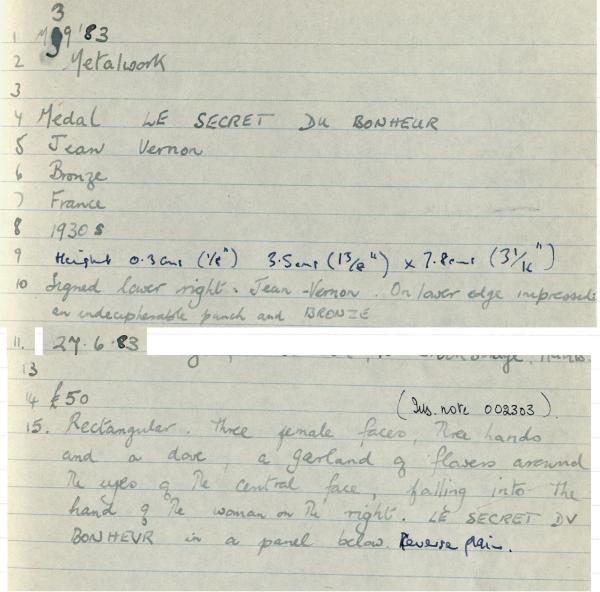 3
1 M 9 '83
2 Metalwork
3
4 Medal LE SECRET DU BONHEUR
5 Jean Vernon
6 Bronze
7 France
8 1930s
9 Height 0.3cms (1/8") 3.5cms (1 3/8") x 7.8cms (3 1/16")
10 Signed lower right. Jean-Vernon. On lower edge impressed
an undecipherable punch and BRONZE
11. 27.6.83
13
14 £50 (Ins. note 002303).
15. Rectangular. Three female faces, three hands
and a dove, a garland of flowers around
the eyes of the central face, falling into the
hand of the woman on the right. LE SECRET DU
BONHEUR in a panel below. Reverse plain.